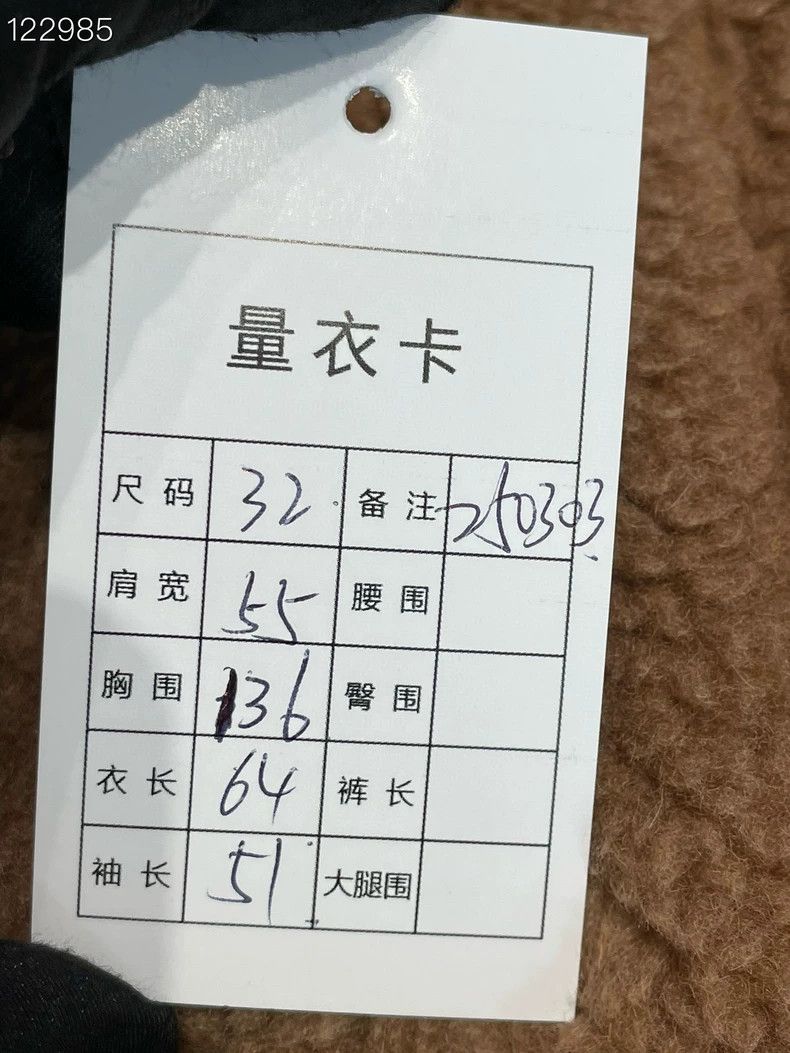 122985
量衣卡
尺码 32 备注 250303
肩宽 55 腰围
胸围 136 臀围
衣长 64 裤长
袖长 51 大腿围